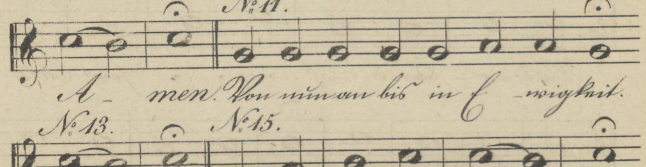 No. 11.
A- men. Von nun an bis in E -wigkeit.
No. 13. No. 15.